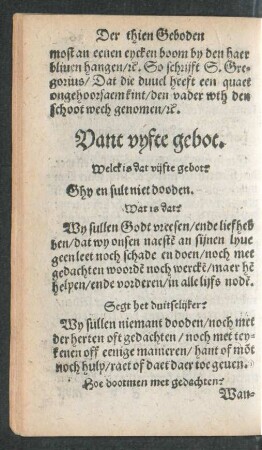 Der thien Geboden
most an eenen eycken boom by den haer
bliuen hangen/rc̃. So schrijft S. Gre-
gorius/ Dat die duuel heeft een quaet
ongehoorsaem kint/den vader wth den
schoot wech genomen/rc̃.
Vant vyfte gebot.
Welck is dat vijfte gebot?
Ghy en sult niet dooden.
Wat is dat?
Wy sullen Godt vreesen/ende lief heb
ben/dat wy onsen naestẽ an sijnen lyue
geen leet noch schade en doen/noch met
gedachten woordẽ noch werckẽ/maer hẽ
helpen/ende vorderen/in alle lijfs nodẽ.
Segt het duitselijker?
Wy sullen niemant dooden/noch met
der herten oft gedachten/noch met tey-
kenen oft eenige manieren/hant of mõt
noch hulp/ract of daet daer toe geuen.
Hoe dootmen met gedachten?
Wan-